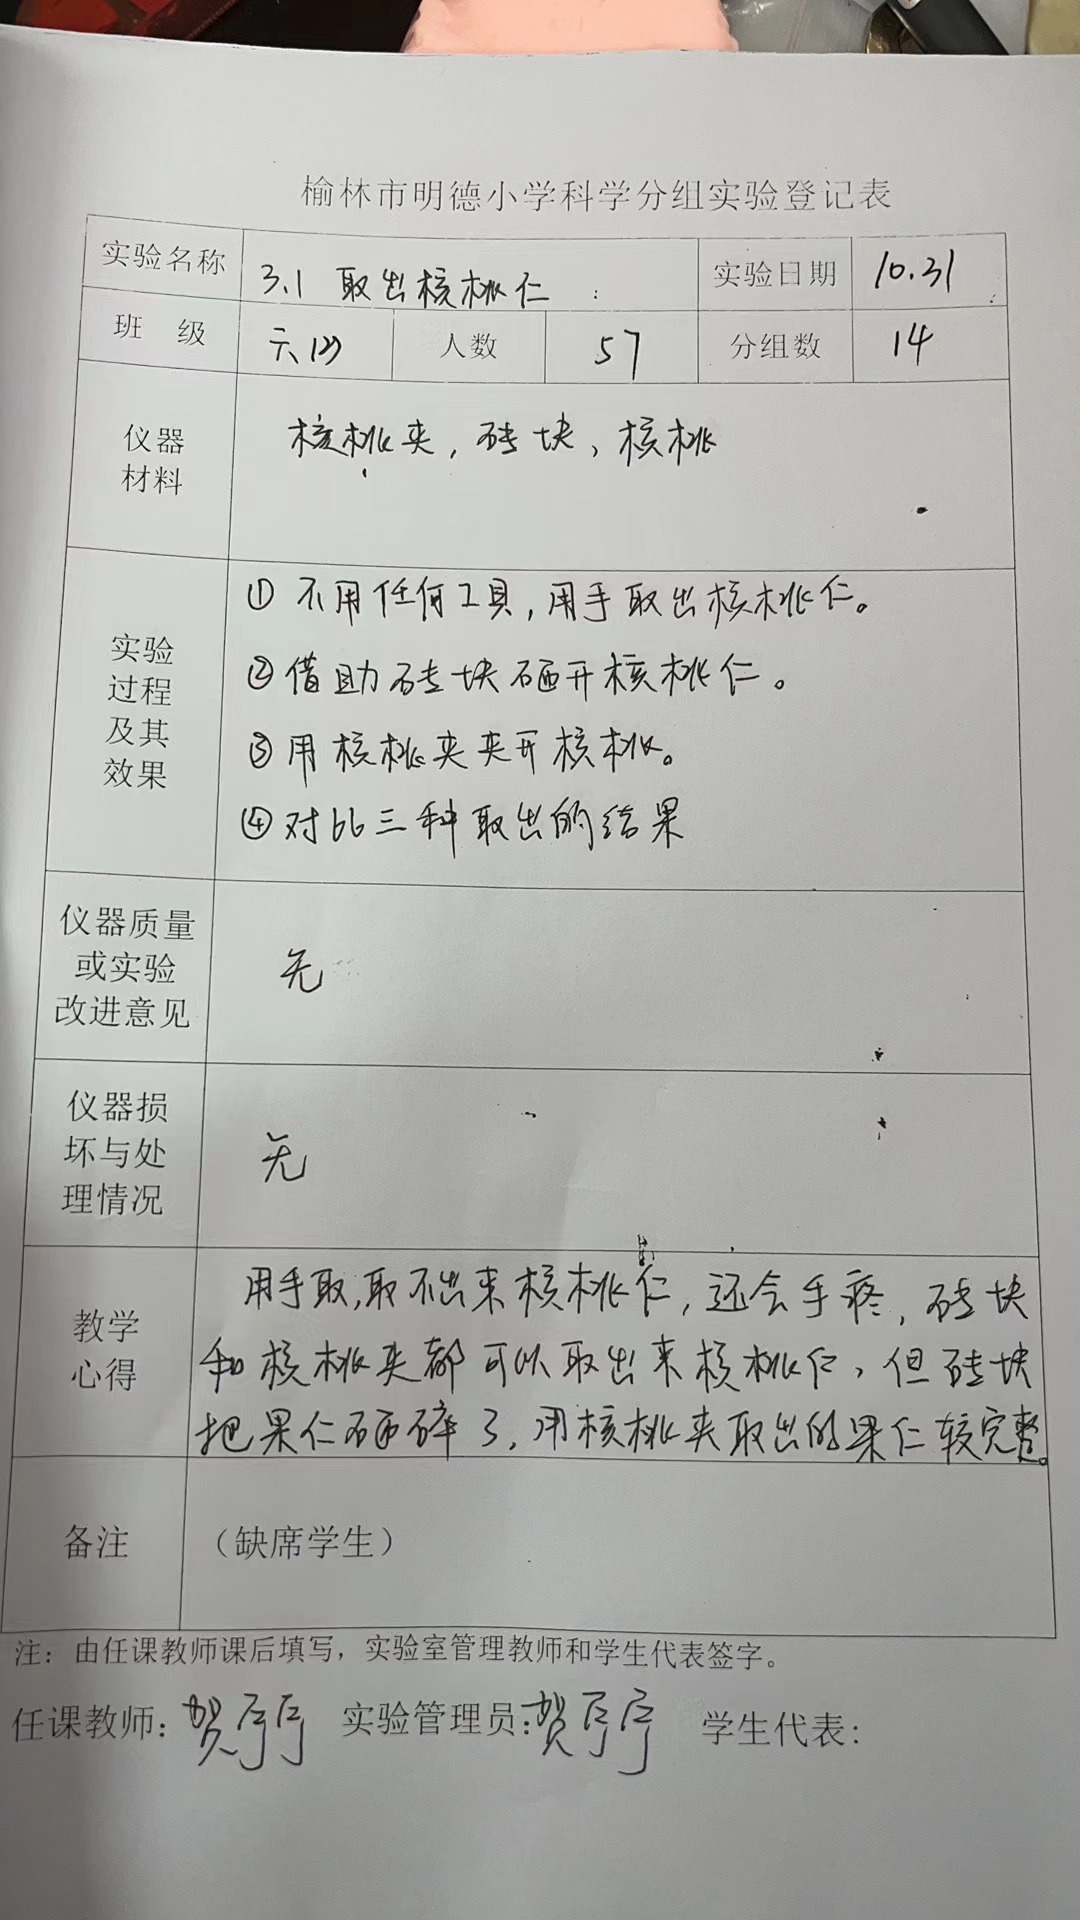 榆林市明德小学科学分组实验登记表
实验名称 3.1 取出核桃仁 实验日期 10.31
班 级 六 人数 57 分组数 14
仪器
材料
核桃夹，砖块、核桃
实验
过程
及其
效果
① 不用任何工具，用手取出核桃仁。
② 借助砖块砸开核桃仁。
③ 用核桃夹夹开核桃。
④ 对比三种取出的结果
仪器质量
或实验
改进意见
无
仪器损
坏与处
理情况
无
教学
心得
用手取，取不出来核桃仁，还会手疼，砖块
和核桃夹都可以取出来核桃仁，但砖块
把果仁砸碎了，用核桃夹取出的果仁较完整。
备注 （缺席学生）
注：由任课教师课后填写，实验室管理教师和学生代表签字。
任课教师：贺 实验管理员：贺 学生代表：